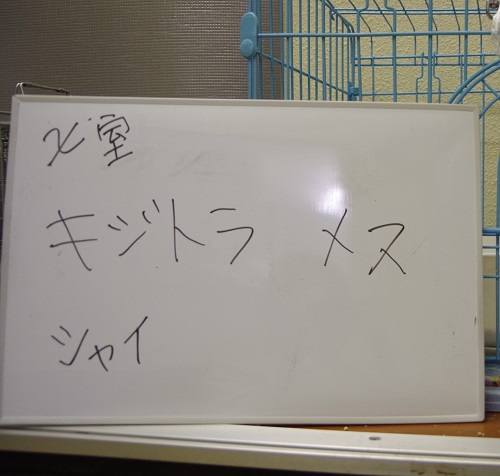 室
キジトラ メス
シャイ